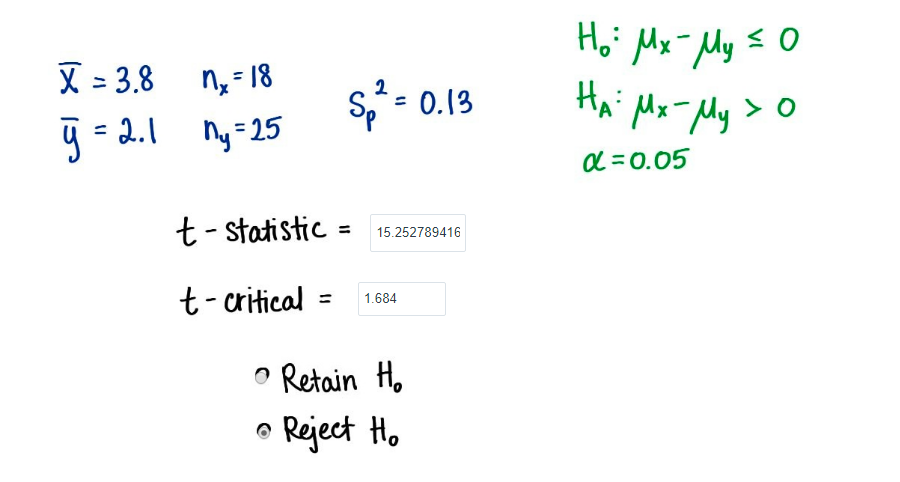 x̄ = 3.8 nₓ = 18
ȳ = 2.1 n_y = 25
S_p² = 0.13
H₀: μₓ - μ_y ≤ 0
H_A: μₓ - μ_y > 0
α = 0.05
t - statistic = 15.252789416
t - critical = 1.684
Retain H₀
Reject H₀